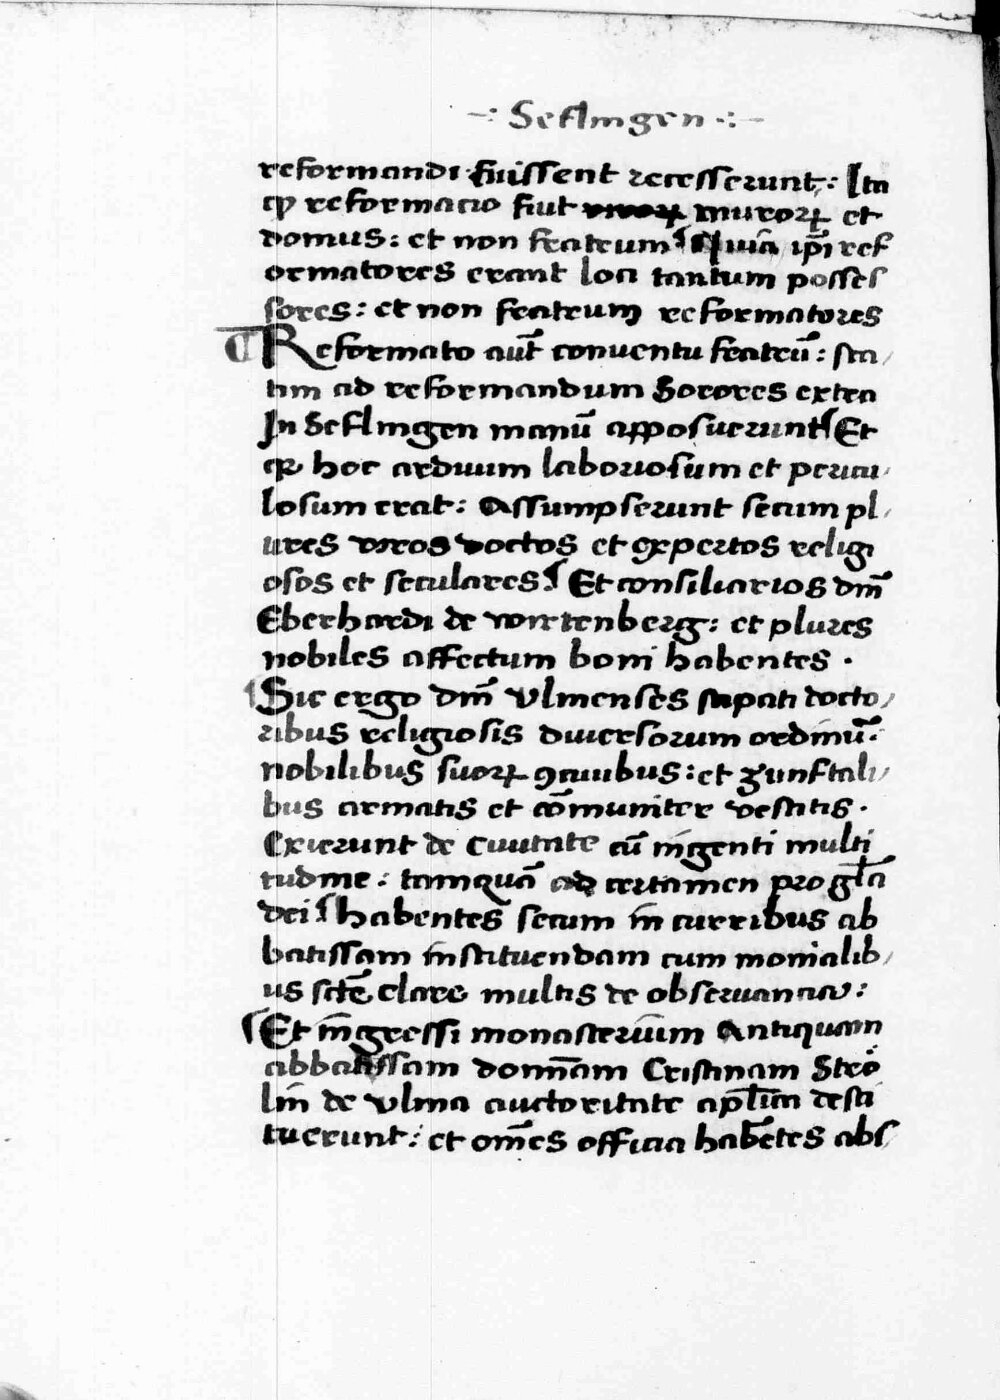 -: Seflingen :-
reformandi fuissent recesserunt: Ita
ꝙ reformacio fuit muroꝝ et
domus: et non fratrum Quia ip̄i ref
ormatores erant loci tantum posses
sores: et non fratrum reformatores
¶ Reformato aut̄ conuentu fratrū: sta/
tim ad reformandum Sorores extra
In Seflingen manū apposuerunt Et
qꝛ hoc arduum laboriosum et pericu/
losum erat: Assumpserunt secum pl/
ures viros doctos et expertos religi
osos et seculares Et consiliarios dm̄
Eberhardi de wirtenberg: et plures
nobiles affectum boni habentes .
Sic ergo dm̄ Vlmenses stipati docto/
ribus religiosis diuersorum ordinū:
nobilibus suoꝝ ꝯciuibus: et zunftali/
bus armatis et cōmuniter vestitis .
Exierunt de Ciuitate cū ingenti multi
tudine: tamquā ad certamen pro gl̄a
dei habentes secum in curribus ab
batissam instituendam cum monialib/
us sctē clare multis de obseruancia:
Et ingressi monasterium Antiquam
abbatissam domn̄am Cristinam Strö
lin de vlma auctoritate apl̄ica desti
tuerunt: et om̄es officia hab̄etes abs/